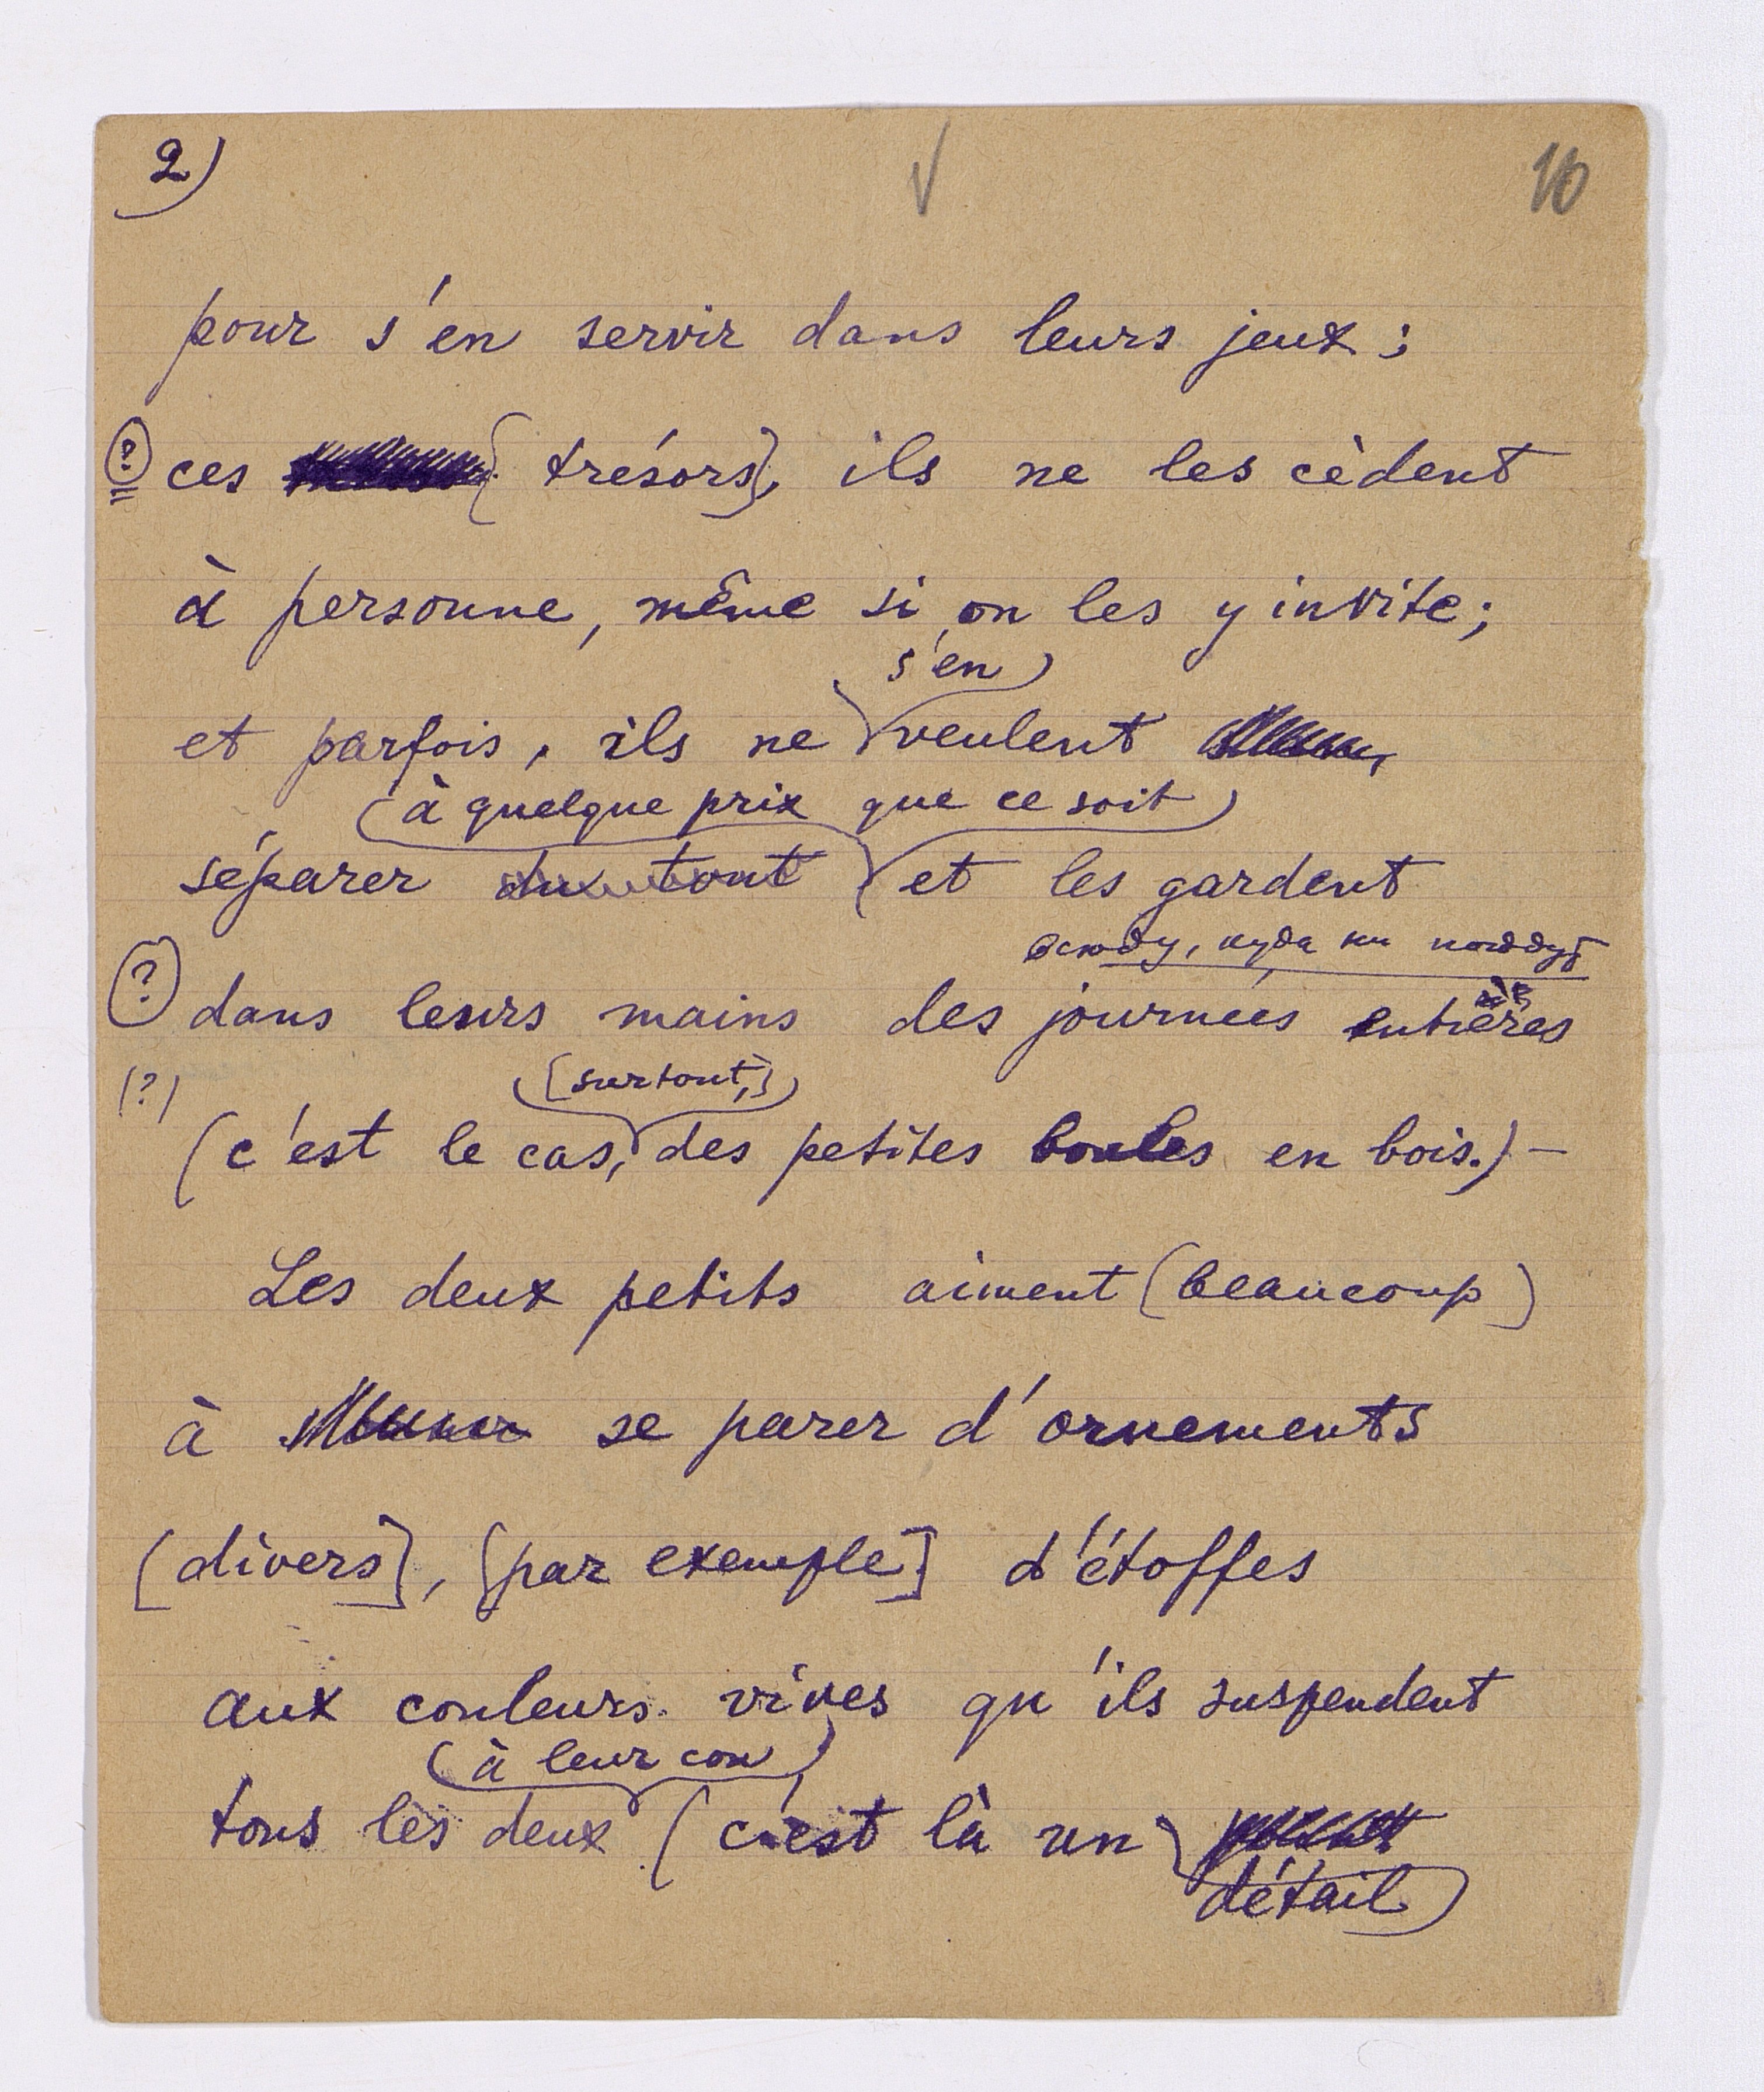 2) √ 10
pour s'en servir dans leurs jeux ;
(?) ces [trésors], ils ne les cèdent
à personne, même si on les y invite ;
s'en
et parfois, ils ne veulent
(à quelque prix que ce soit)
séparer du tout et les gardent
всюду, куда ни пойдут
(?) dans leurs mains des journées entières
(?) [surtout,]
(c'est le cas, des petites boules en bois.) —
Les deux petits aiment (beaucoup)
à se parer d'ornements
[divers], [par exemple] d'étoffes
aux couleurs vives qu'ils suspendent
(à leur cou)
tous les deux (c'est là un
détail)